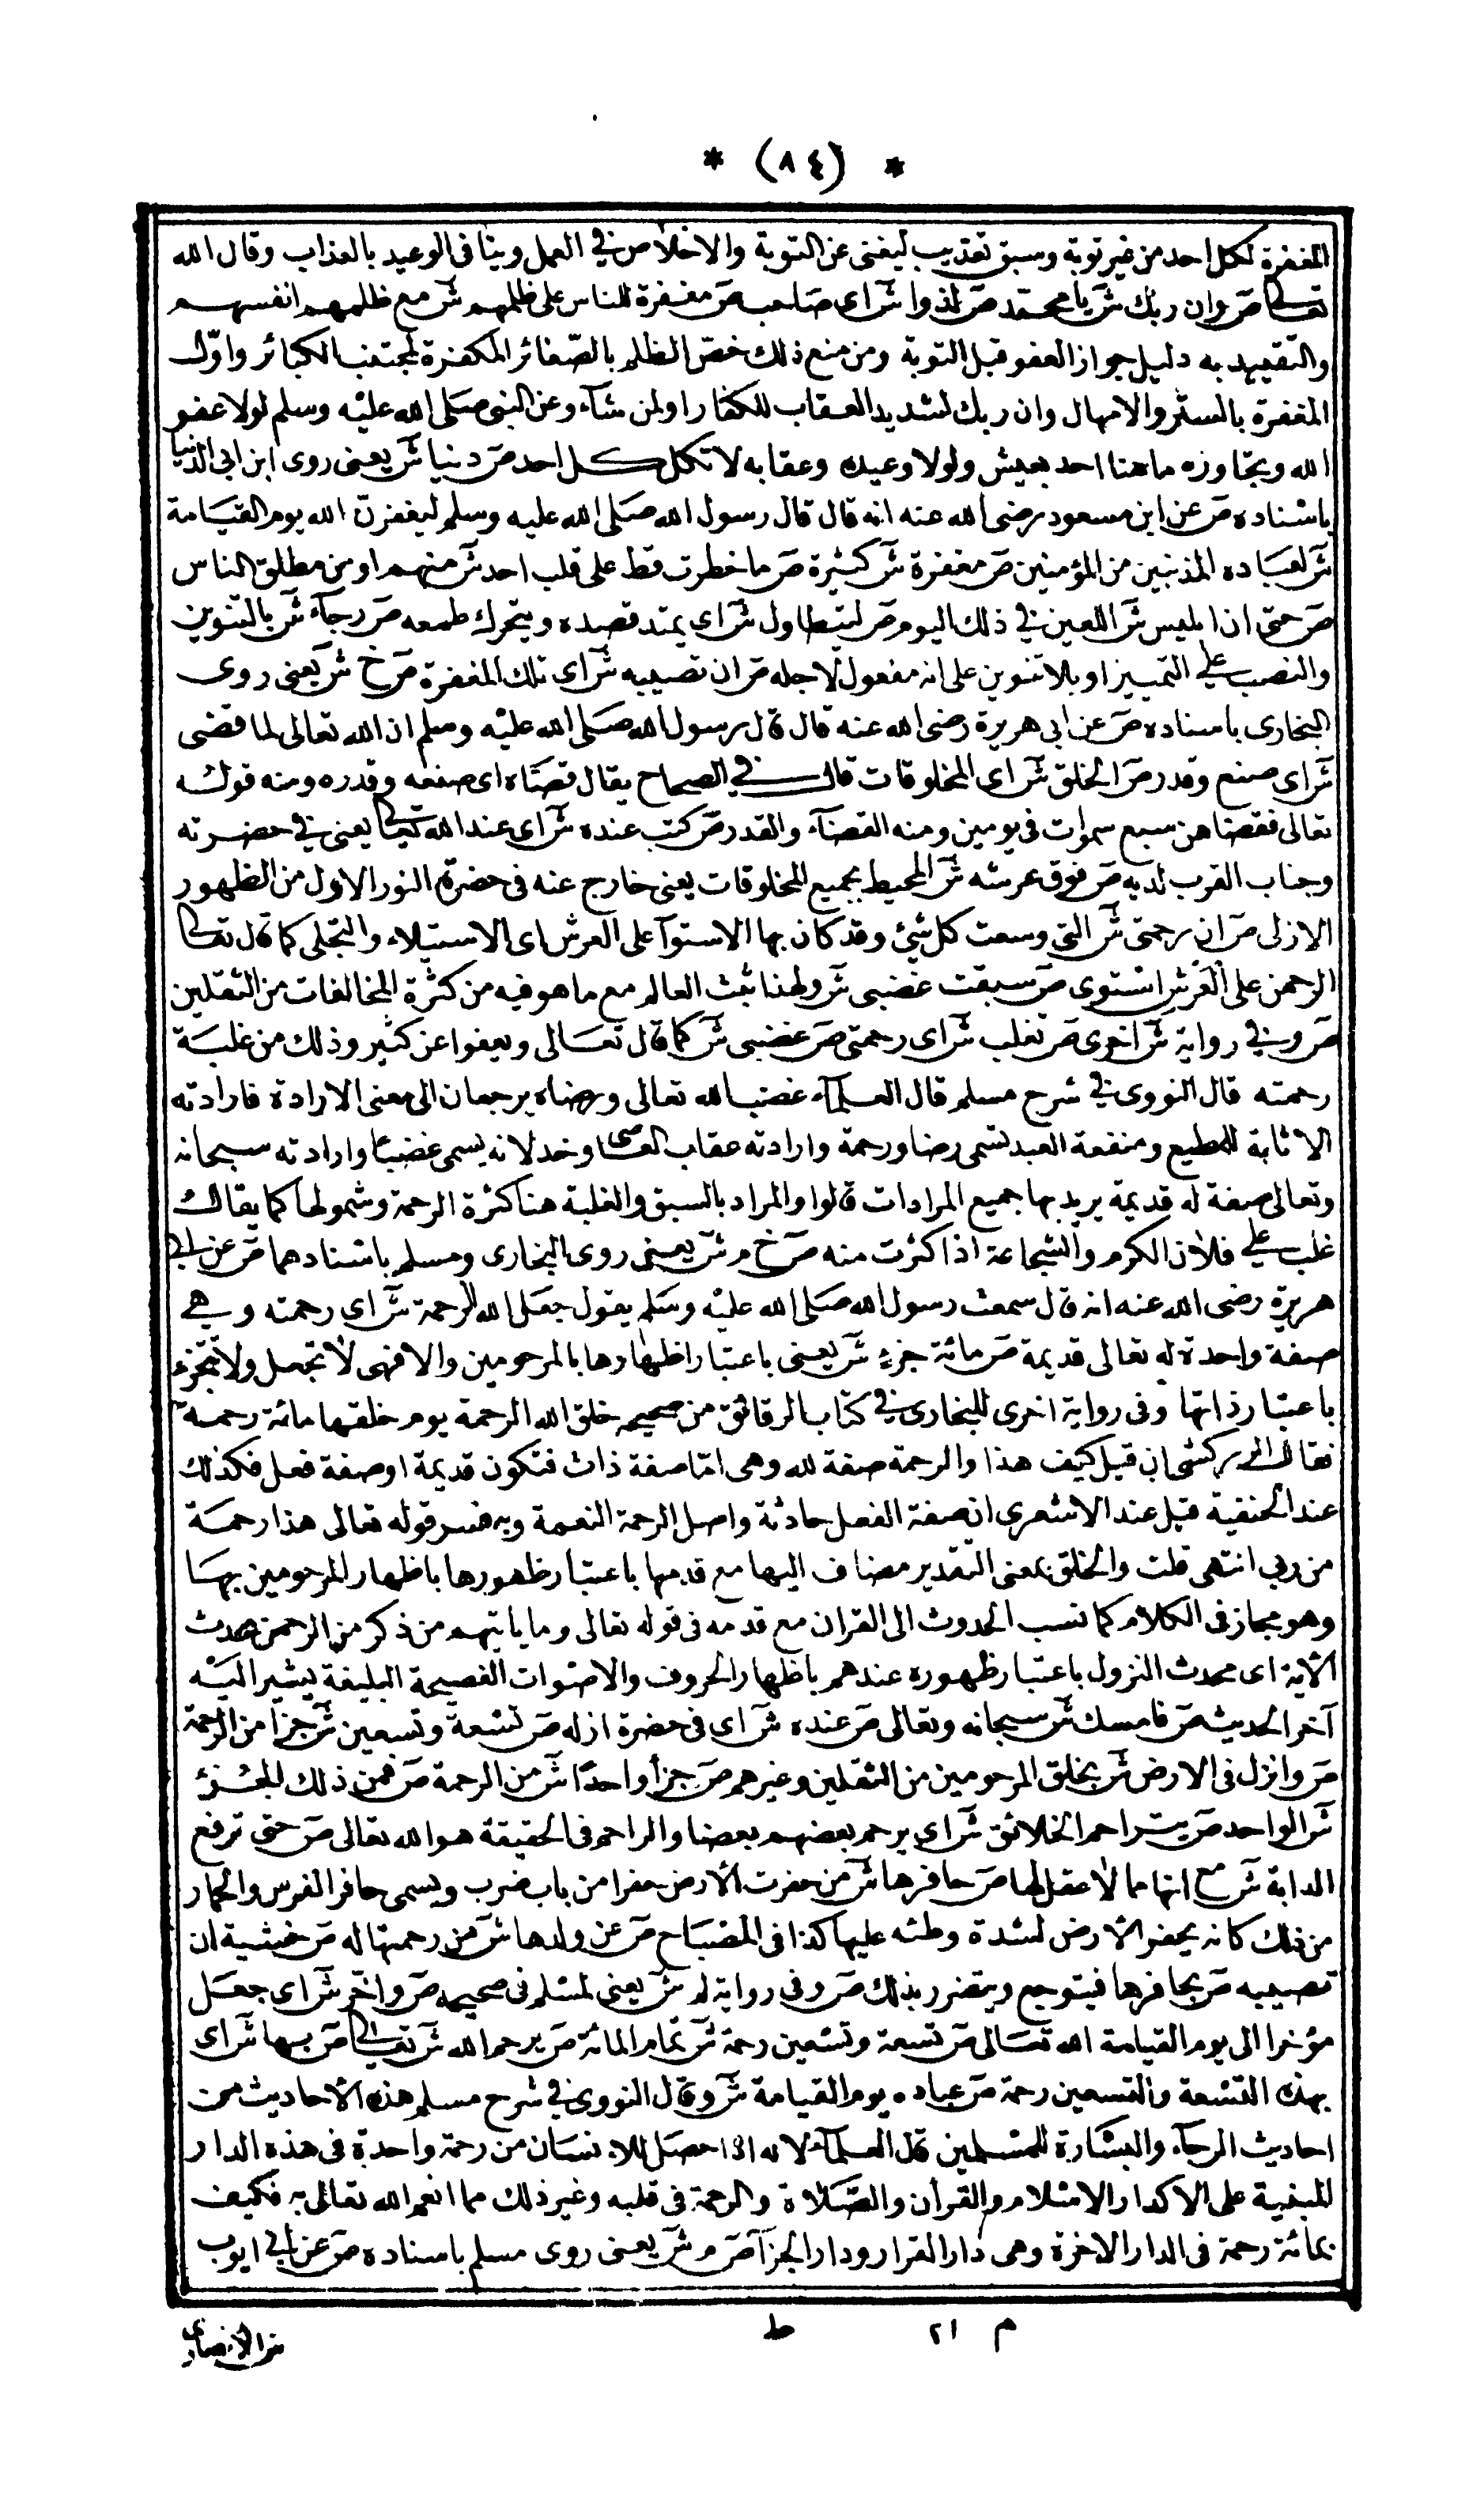 * (٨٤) *
المغفرة لكل احد من غير توبة وسبق تعذيب ليغنى عن التوبة والاخلاص في العمل وينافى الوعيد بالعذاب وقال الله
تعالى ص وان ربك ش يا محمد ص لذوا ش اى صاحب ص مغفرة للناس على ظلمهم ش مع ظلمهم انفسهم
والتقييد به دليل جواز العفو قبل التوبة ومن منع ذلك خص الظلم بالصغائر المكفرة لمجتنب الكبائر واوّل
المغفرة بالستر والامهال وان ربك لشديد العقاب للكفار اولمن شآء وعن النبى صلى الله عليه وسلم لولا عفو
الله وتجاوزه ما هنا احد بعيش ولولا وعيده وعقابه لاتكل كل احد ص دنيا ش يعنى روى ابن ابى الدنيا
باسناده ص عن ابن مسعود رضى الله عنه انه قال قال رسول الله صلى الله عليه وسلم ليغفرن الله يوم القيامة
ش لعباده المذنبين من المؤمنين ص مغفرة ش كثيرة ص ما خطرت قط على قلب احد ش منهم او من مطلق الناس
ص حتى ان ابليس ش اللعين في ذلك اليوم ص ليتطاول ش اى يمتد قصده ويتحرك طمعه ص رجآء ش بالتنوين
والنصب على التمييز او بلا تنوين على انه مفعول لاجله ص ان تصيبه ش اى تلك المغفرة ص خ ش يعنى روى
البخارى باسناده ص عن ابى هريرة رضى الله عنه قال قال رسول الله صلى الله عليه وسلم ان الله تعالى لما قضى
ش اى صنع وقدر ص الخلق ش اى المخلوقات قال في الصحاح يقال قضاه اى صنعه وقدره ومنه قوله
تعالى فقضاهن سبع سموات فى يومين ومنه القضآء والقدر ص كتب عنده ش اى عند الله تعالى يعنى في حضرته
وجناب القرب لديه ص فوق عرشه ش المحيط بجميع المخلوقات يعنى خارج عنه فى حضرة النور الاول من الظهور
الازلى ص ان رحمتى ش التى وسعت كل شئ وقد كان بها الاستوآ على العرش اى الاستيلاء والتجلى كما قال تعالى
الرحمن على العرش استوى ص سبقت غضبى ش ولهذا ثبت العالم مع ما هو فيه من كثرة المخالفات من الثقلين
ص وفي رواية ش اخرى ص تغلب ش اى رحمتى ص غضبى ش كما قال تعالى ويعفوا عن كثير وذلك من غلبة
رحمته قال النووى في شرح مسلم قال العلمآء غضب الله تعالى ورضاه يرجعان الى معنى الارادة فارادته
الاثابة للمطيع ومنفعة العبد تسمى رضا ورحمة وارادته عقاب العاصى وخذلانه يسمى غضبا وارادته سبحانه
وتعالى صفة له قديمة يريد بها جميع المرادات قالوا والمراد بالسبق والغلبة هنا كثرة الرحمة وشمولها كما يقال
غلب على فلان الكرم والشجاعة اذا كثرت منه ص خ م ش يعنى روى البخارى ومسلم باسنادهما ص عن ابى
هريرة رضى الله عنه انه قال سمعت رسول الله صلى الله عليه وسلم يقول جعل الله الرحمة ش اى رحمته وهى
صفة واحدة له تعالى قديمة ص مائة جزء ش يعنى باعتبار اظهارها بالمرحومين والا فهى لا تجعل ولا تتجزء
باعتبار ذاتها وفى رواية اخرى للبخارى في كتاب الرقائق من صحيحه خلق الله الرحمة يوم خلقها مائة رحمة
فقال الزركشى ان قيل كيف هذا والرحمة صفة لله وهى اما صفة ذات فتكون قديمة او صفة فعل فكذلك
عند الحنفية قيل عند الاشعرى ان صفة الفعل حادثة واصل الرحمة النعمة وبه فسر قوله تعالى هذا رحمة
من ربى انتهى قلت والخلق بمعنى التقدير مضاف اليها مع قدمها باعتبار ظهورها باظهار المرحومين بها
وهو مجاز فى الكلام كما نسب الحدوث الى القران مع قدمه فى قوله تعالى وما ياتيهم من ذكر من الرحمن محدث
الآية اى محدث النزول باعتبار ظهوره عندهم باظهار الحروف والاصوات الفصيحة البليغة يشير اليه
آخر الحديث ص فامسك ش سبحانه وتعالى ص عنده ش اى فى حضرة ازله ص تسعة وتسعين ش جزأ من الرحمة
ص وانزل فى الارض ش بخلق المرحومين من الثقلين وغيرهم ص جزأ واحدًا ش من الرحمة ص فمن ذلك الجزء
ش الواحد ص يتراحم الخلائق ش اى يرحم بعضهم بعضا والراحم فى الحقيقة هو الله تعالى ص حتى ترفع
الدابة ش مع انها مما لا عقل لها ص حافرها ش من حفرت الارض حفرا من باب ضرب ويسمى حافر الفرس والحمار
من ذلك كانه يحفر الارض لشدة وطئه عليها كذا فى المصباح ص عن ولدها ش من رحمتها له ص خشية ان
تصيبه ص بحافرها فيتوجع ويتضرر بذلك ص وفى رواية لم ش يعنى لمسلم فى صحيحه ص واخر ش اى جعل
مؤخرا الى يوم القيامة الله تعالى ص تسعة وتسعين رحمة ش تمام المائة ص يرحم الله ش تعالى ص بها ش اى
بهذه التسعة والتسعين رحمة ص عباده يوم القيامة ش وقال النووى في شرح مسلم هذه الاحاديث من
احاديث الرجآء والبشارة للمسلمين قال العلمآء لانه اذا حصل للانسان من رحمة واحدة فى هذه الدار
المبنية على الاكدار الاسلام والقرأن والصلاة والرحمة فى قلبه وغير ذلك مما انعم الله تعالى به فكيف
بمائة رحمة فى الدار الاخرة وهى دار القرار ودار الجزآ ص م ش يعنى روى مسلم باسناده ص عن ابى ايوب
م ٢١ ط
ش الانصارى